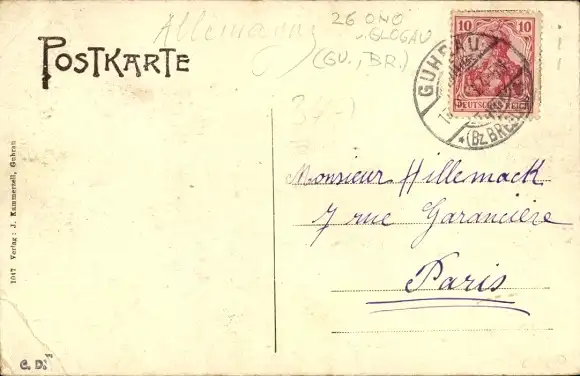 Allemagne
26 ONO
v. GLOGAU
(GU., BR.)
POSTKARTE
10 10
DEUTSCHES REICH
GUHRAU
* (Bz BRE
Monsieur Hillemack
7 rue Garancière
Paris
1047 Verlag: J. Kammerzell, Guhrau
C. D.